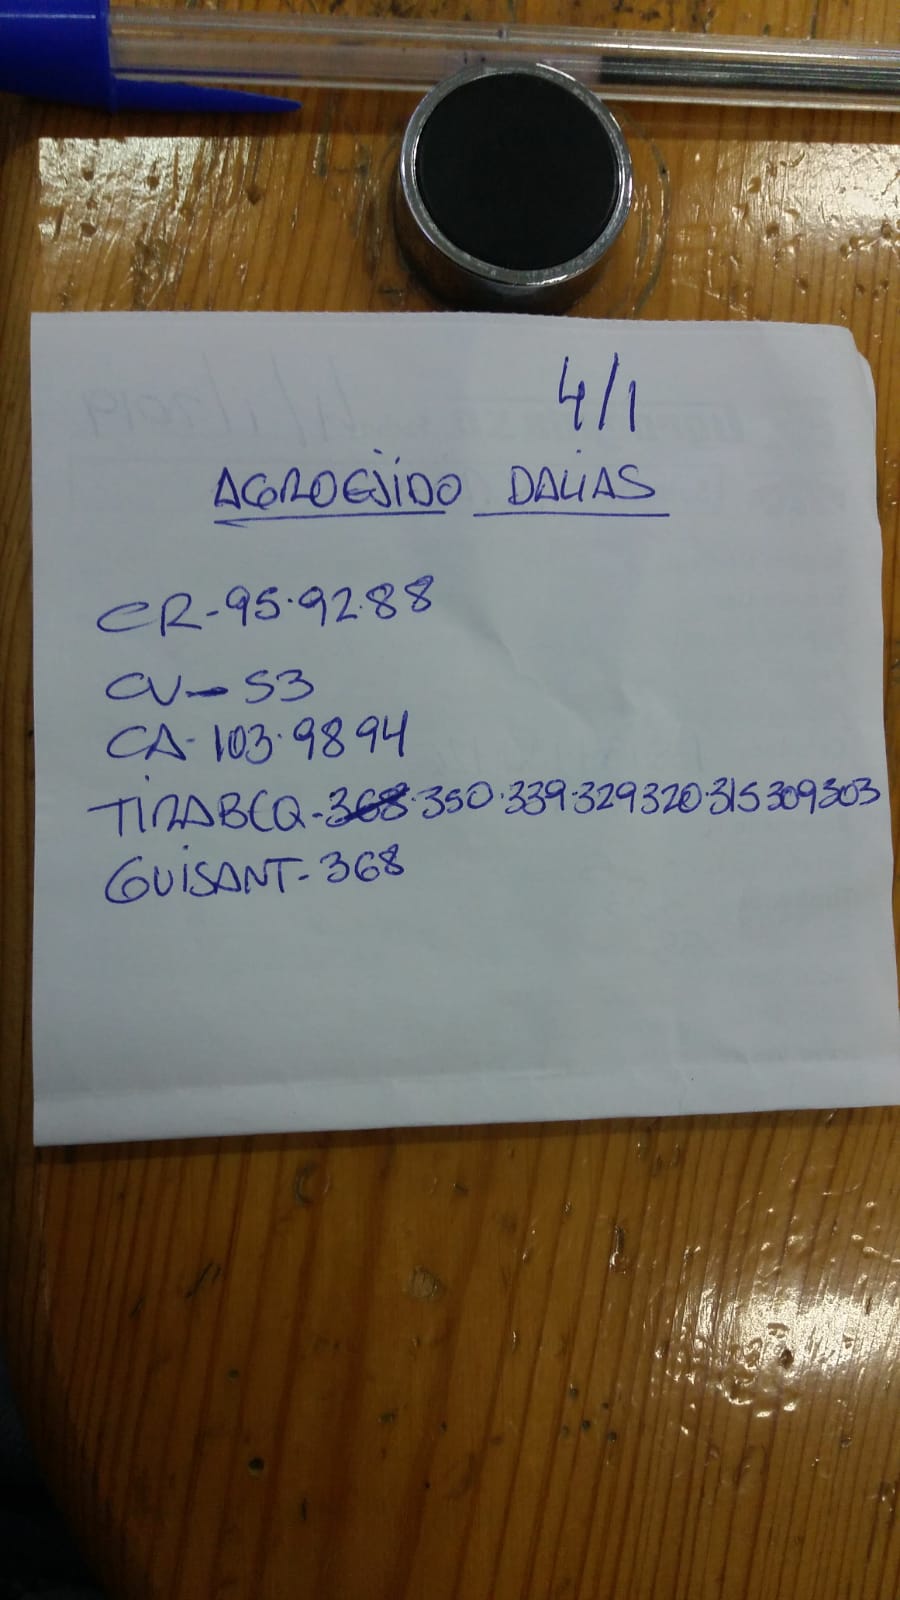 4/1
AGROEJIDO DALIAS
CR-95.92.88
CV-53
CA-103.98 94
TIRABEQ-368.350.339.329 320.315 309 303
GUISANT-368